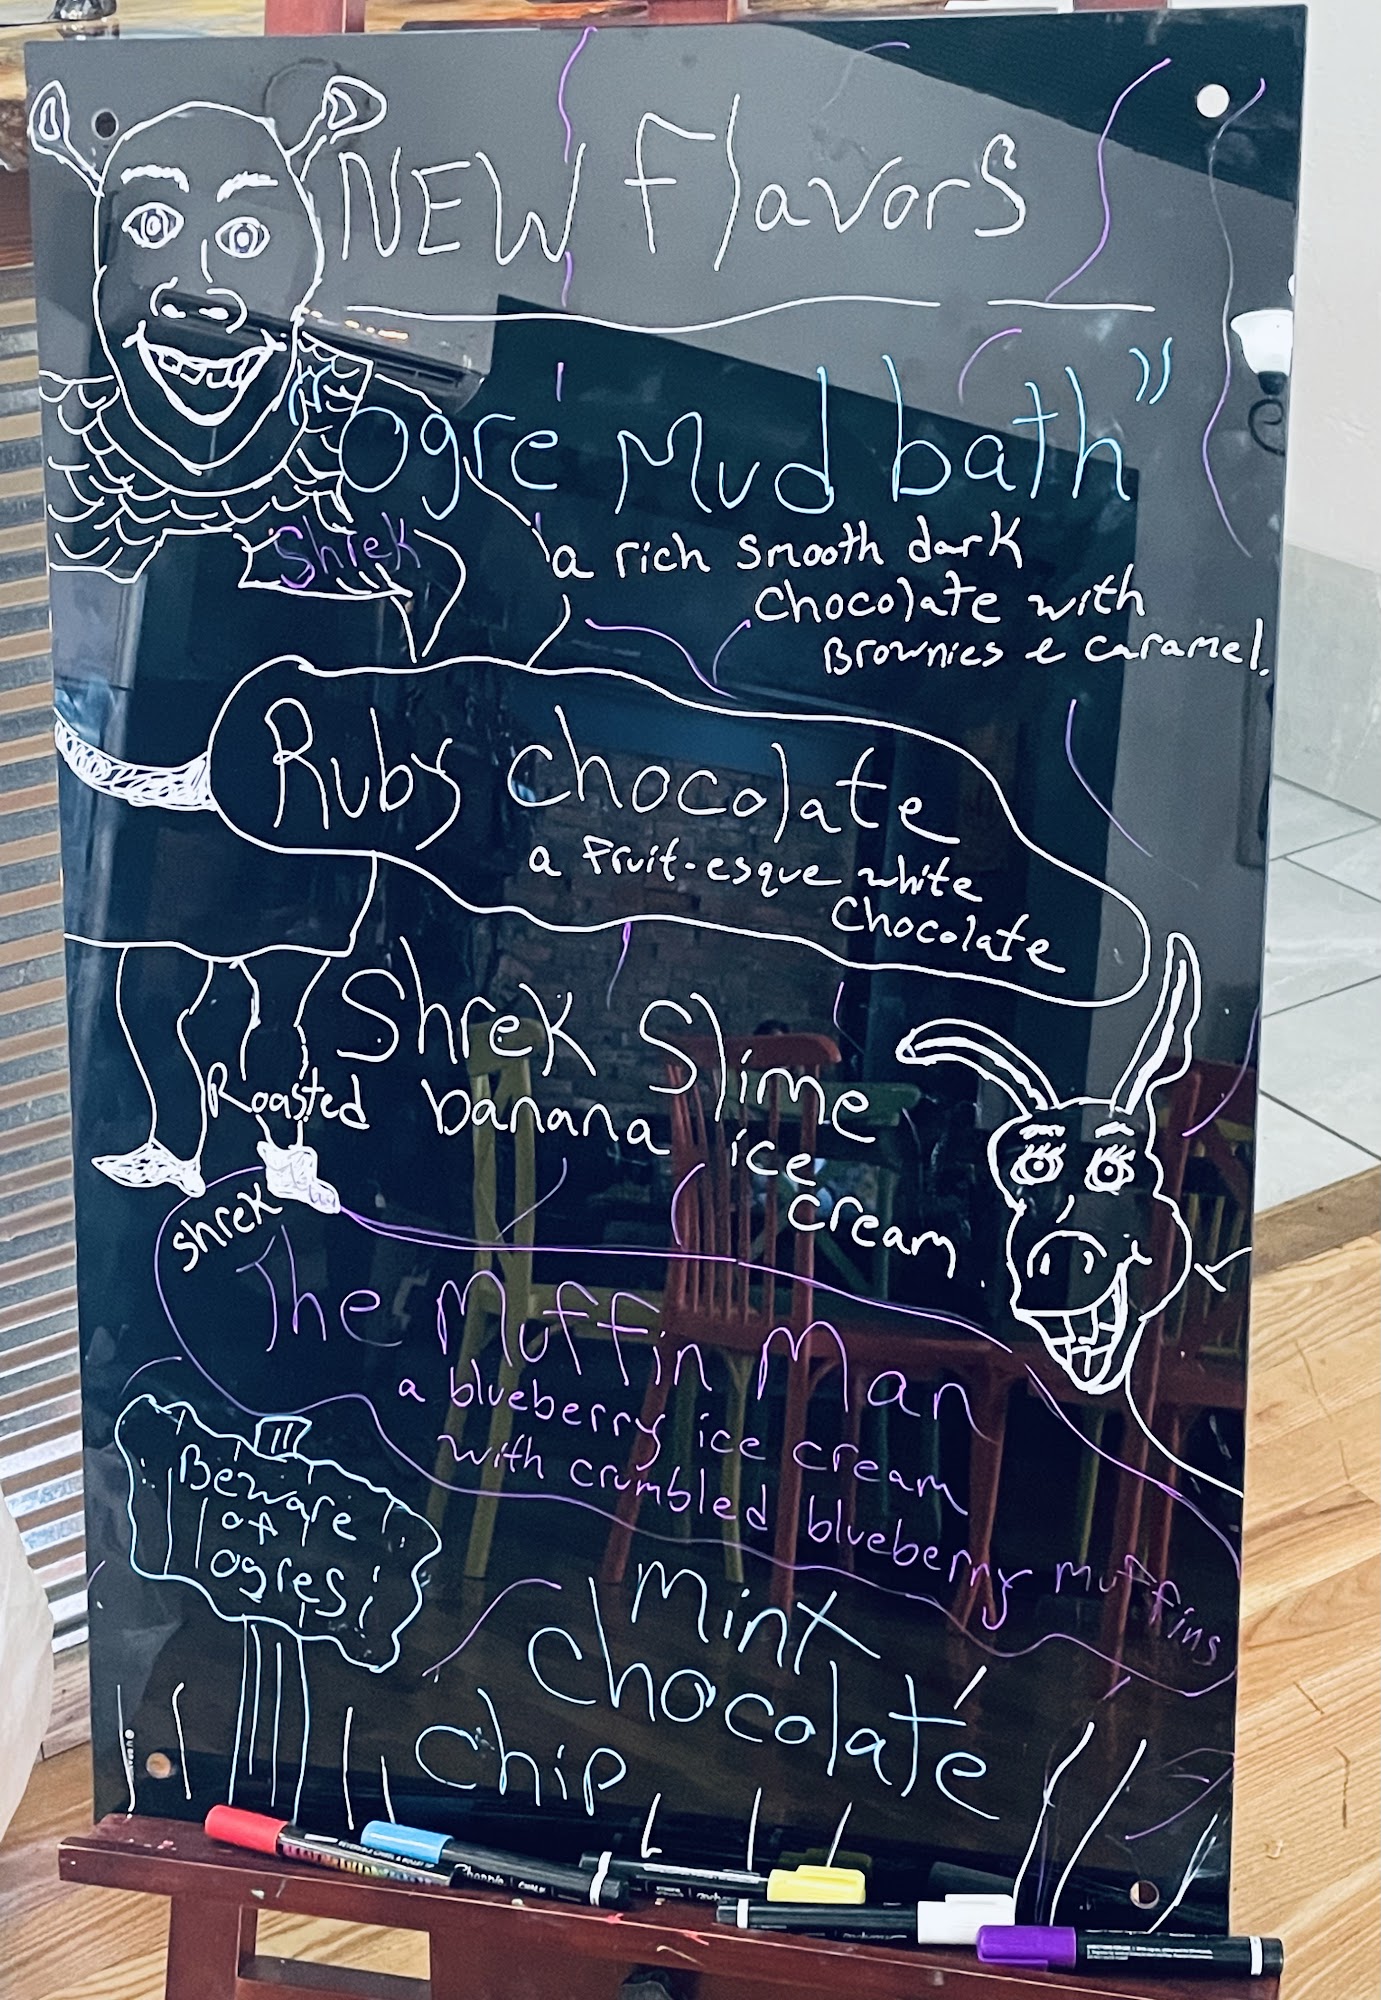 NEW Flavors
"Ogre Mud bath"
Shrek
a rich smooth dark
chocolate with
Brownies & caramel.
Ruby chocolate
a fruit-esque white
chocolate
Shrek Slime
Roasted banana ice
cream.
shrek
The Muffin Man
a blueberry ice cream
with crumbled blueberry muffins
Beware
of
ogres!
Mint
chocolate
chip
Sharpie CHALK